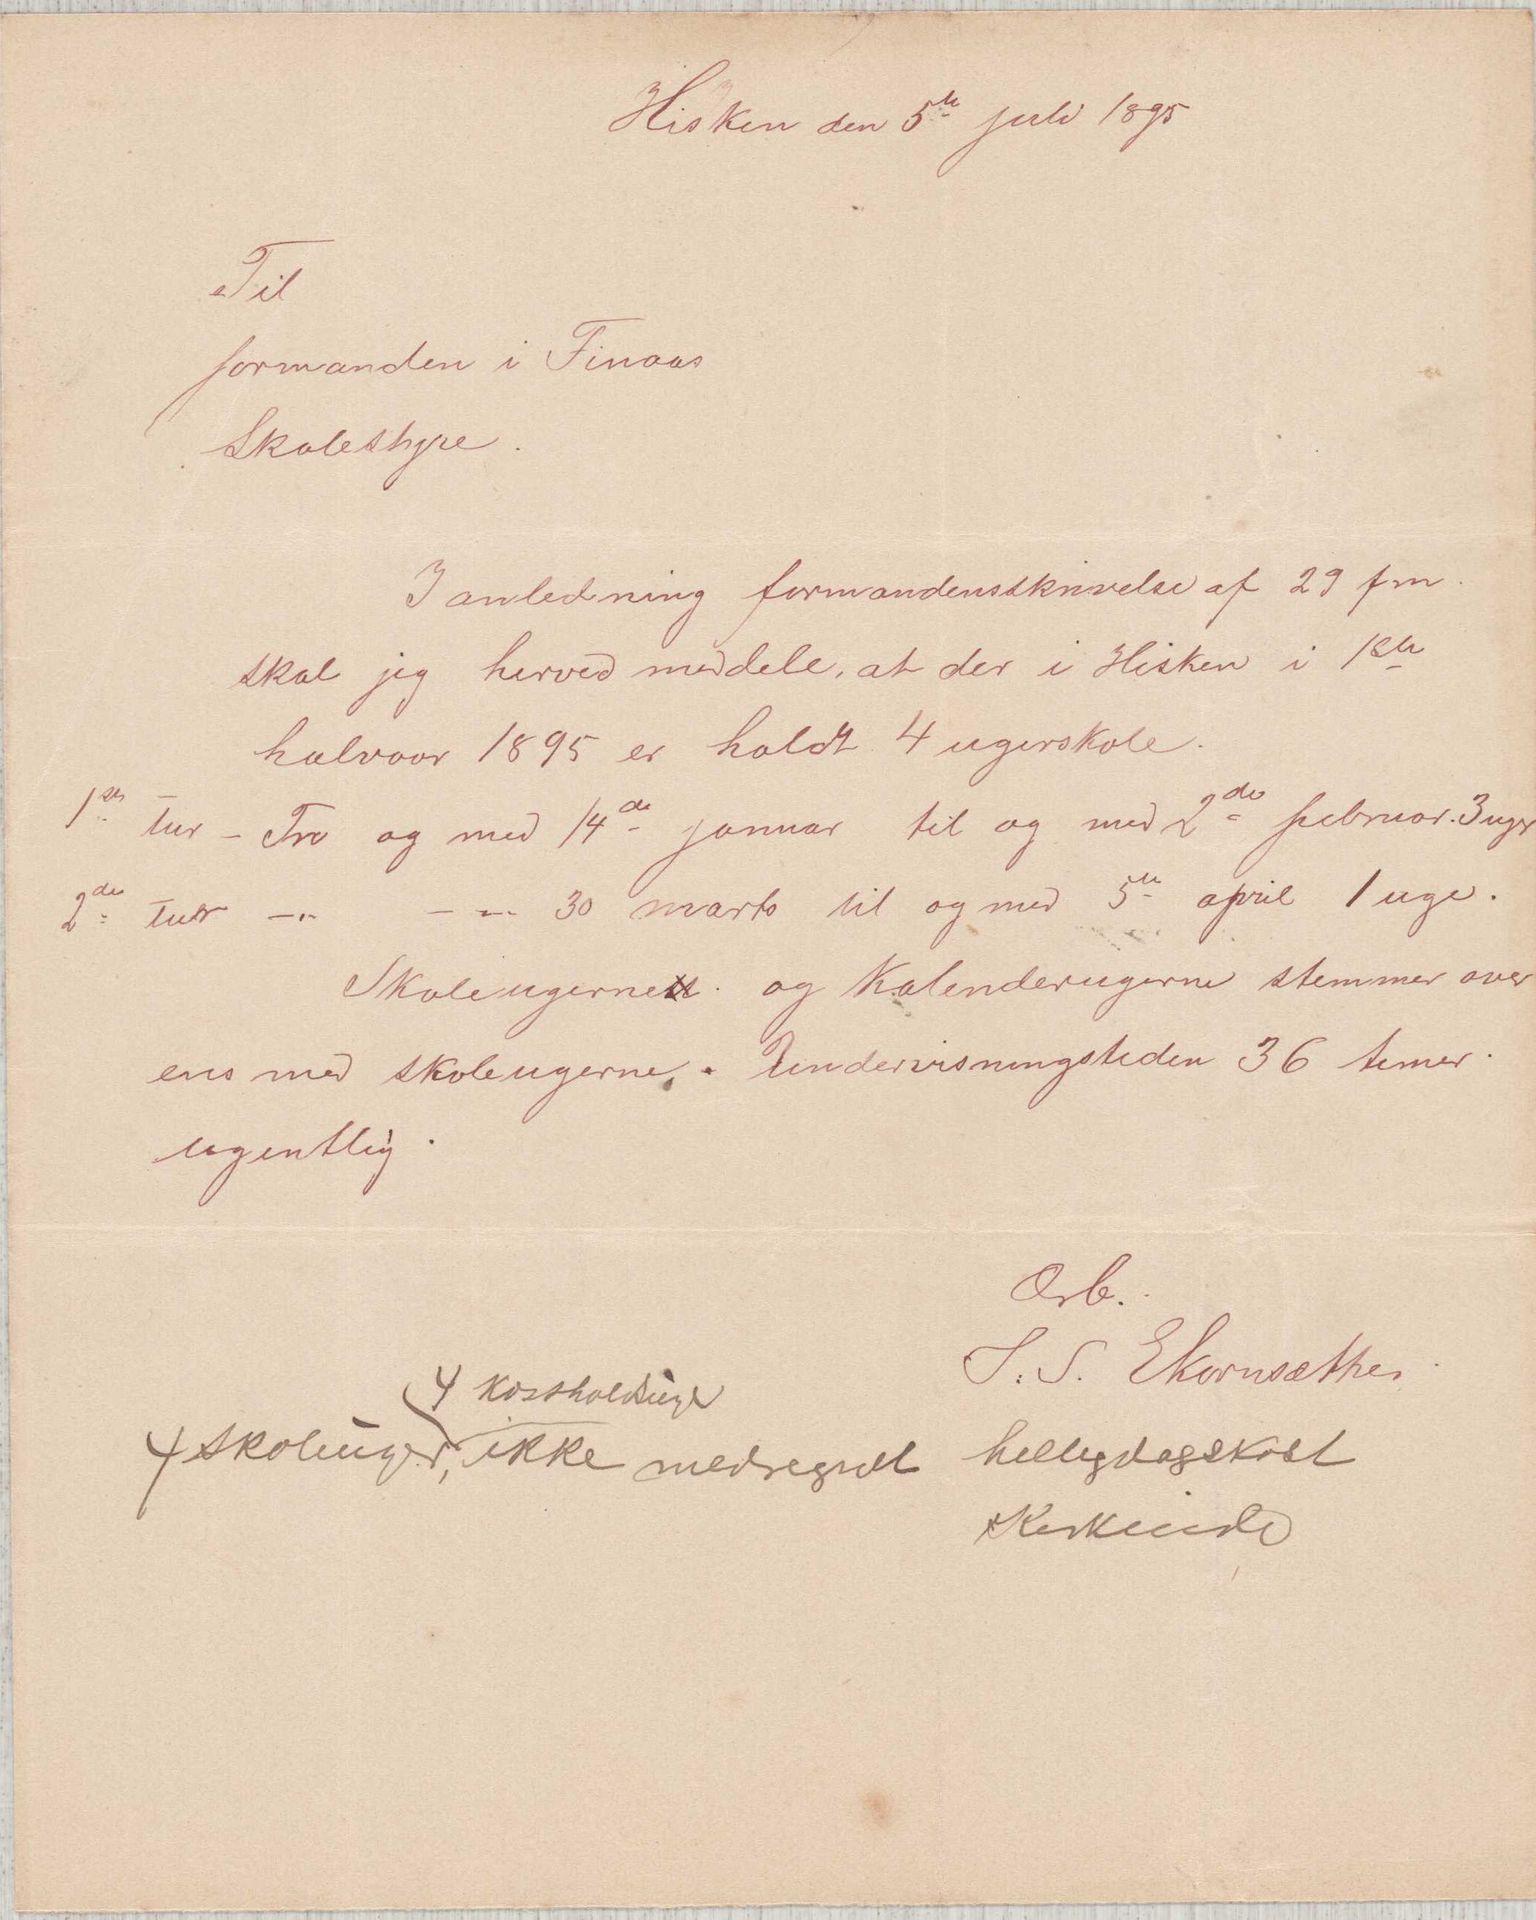 Hisken den 5te juli 1895
Til
formanden i Finaas
Skolestyre.
I anledning formandensskrivelse af 29 fm.
skal jeg herved meddele, at der i Hisken i 1ste
halvaar 1895 er holdt 4 ugerskole.
1ste tur – Fra og med 14de januar til og med 2den februar. 3 uger
2den tur – " – – " – 30 marts til og med 5te april 1 uge.
Skoleugerne og Kalenderugerne stemmer over
ens med skoleugerne. Undervisningstiden 36 timer
ugentlig.
Ærb.
S. S. Ekornsæther
4 kostholdsuger
4 skoleuger, ikke medregnet helligdagskost